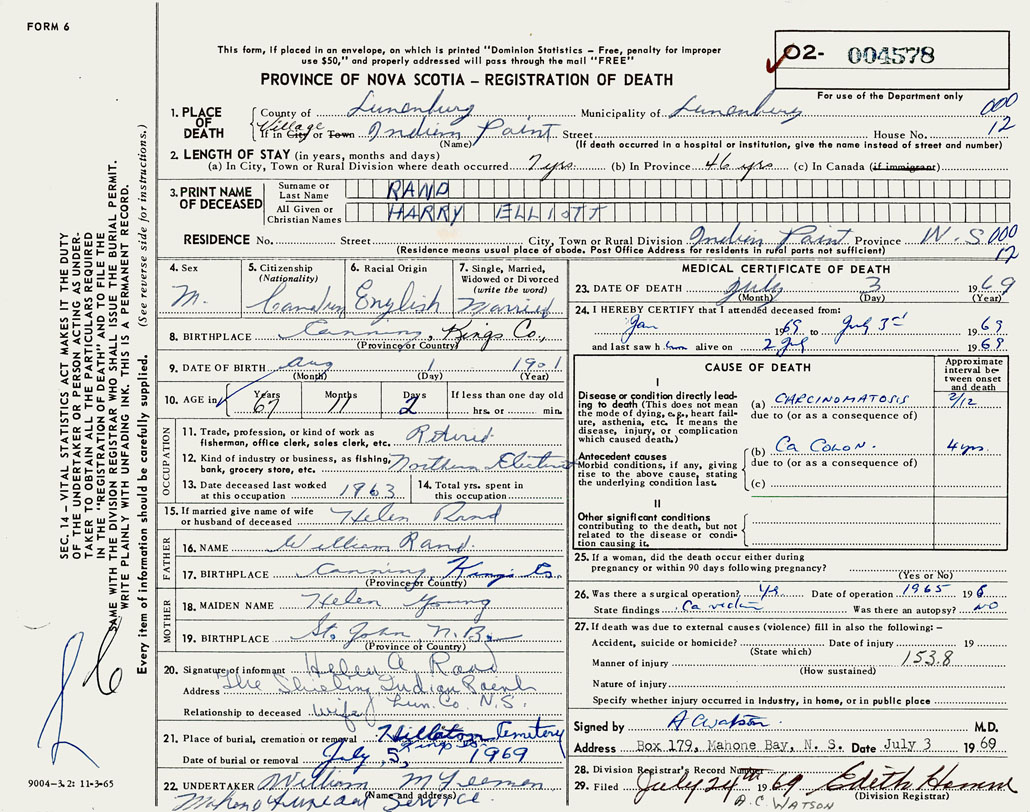 FORM 6
This form, if placed in an envelope, on which is printed "Dominion Statistics – Free, penalty for improper
use $50," and properly addressed will pass through the mail "FREE"
PROVINCE OF NOVA SCOTIA – REGISTRATION OF DEATH
02- 004578
For use of the Department only
1. PLACE OF DEATH County of Lunenburg Municipality of Lunenburg 000
Village If in City or Town Indian Point Street House No. 12
(Name) (If death occurred in a hospital or institution, give the name instead of street and number)
2. LENGTH OF STAY (in years, months and days)
(a) In City, Town or Rural Division where death occurred 7 yrs (b) In Province 46 yrs (c) In Canada (if immigrant)
3. PRINT NAME OF DECEASED Surname or Last Name RAND
All Given or Christian Names HARRY ELLIOTT
RESIDENCE No. Street City, Town or Rural Division Indian Point Province N.S. 000
(Residence means usual place of abode. Post Office Address for residents in rural parts not sufficient) 12
4. Sex M.
5. Citizenship (Nationality) Canadian
6. Racial Origin English
7. Single, Married, Widowed or Divorced (write the word) Married
8. BIRTHPLACE Canning, Kings Co.,
(Province or Country)
9. DATE OF BIRTH Aug 1 1901
(Month) (Day) (Year)
10. AGE in Years 67 Months 11 Days 2 If less than one day old hrs. or min.
OCCUPATION
11. Trade, profession, or kind of work as fisherman, office clerk, sales clerk, etc. Retired
12. Kind of industry or business, as fishing, bank, grocery store, etc. Northern Electric
13. Date deceased last worked at this occupation 1963
14. Total yrs. spent in this occupation
15. If married give name of wife or husband of deceased Helen Rand
FATHER
16. NAME William Rand
17. BIRTHPLACE Canning Kings Co.
(Province or Country)
MOTHER
18. MAIDEN NAME Helen Young
19. BIRTHPLACE St. John N.B.
(Province or Country)
20. Signature of informant Helen A. Rand
Address The Shieling Indian Point
Lun. Co. N.S.
Relationship to deceased Wife
21. Place of burial, cremation or removal Hillaton Cemetery
Kings Co.
Date of burial or removal July, 5, 1969
22. UNDERTAKER William
(Name and address)
Funeral Service.
MEDICAL CERTIFICATE OF DEATH
23. DATE OF DEATH July 3 1969
(Month) (Day) (Year)
24. I HEREBY CERTIFY that I attended deceased from:
Jan 1969 to July 3rd 1969
and last saw him alive on 2 July 1969
CAUSE OF DEATH
Approximate interval between onset and death
I
Disease or condition directly leading to death (This does not mean the mode of dying, e.g., heart failure, asthenia, etc. It means the disease, injury, or complication which caused death.)
(a) CARCINOMATOSIS 2/12
due to (or as a consequence of)
Antecedent causes
Morbid conditions, if any, giving rise to the above cause, stating the underlying condition last.
(b) Ca COLON. 4 yrs.
due to (or as a consequence of)
(c)
II
Other significant conditions
contributing to the death, but not related to the disease or condition causing it.
25. If a woman, did the death occur either during pregnancy or within 90 days following pregnancy?
(Yes or No)
26. Was there a surgical operation? Yes Date of operation 1965 196
State findings Ca Was there an autopsy? NO
27. If death was due to external causes (violence) fill in also the following:–
Accident, suicide or homicide? Date of injury 19
(State which)
Manner of injury 153.8
(How sustained)
Nature of injury
Specify whether injury occurred in Industry, in home, or in public place
Signed by A C Watson M.D.
Address Box 179, Mahone Bay, N. S. Date July 3 1969
28. Division Registrar's Record Number
29. Filed July 24th 1969
(Division Registrar)
A.C. WATSON
SEC. 14 – VITAL STATISTICS ACT MAKES IT THE DUTY
OF THE UNDERTAKER OR PERSON ACTING AS UNDER-
TAKER TO OBTAIN ALL THE PARTICULARS REQUIRED
IN THE "REGISTRATION OF DEATH" AND TO FILE THE
SAME WITH THE DIVISION REGISTRAR WHO SHALL ISSUE THE BURIAL PERMIT.
WRITE PLAINLY WITH UNFADING INK. THIS IS A PERMANENT RECORD.
Every item of information should be carefully supplied. (See reverse side for instructions.)
9004-3.2: 11-3-65